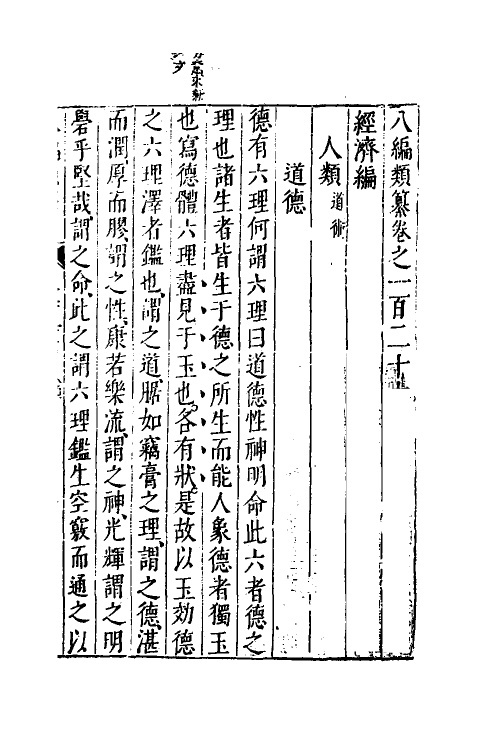 八編類纂卷之一百二十
經濟編
人類道術
道德
德有六理何謂六理曰道德性神明命此六者德之
理也諸生者皆生于德之所生而能人象德者獨玉
也寫德體六理盡見于玉也各有狀是故以玉効德
之六理澤者鑑也謂之道腒如竊膏之理謂之德湛
而潤厚而膠謂之性康若樂流謂之神光輝謂之明
礐乎堅哉謂之命此之謂六理鑑生空竅而通之以